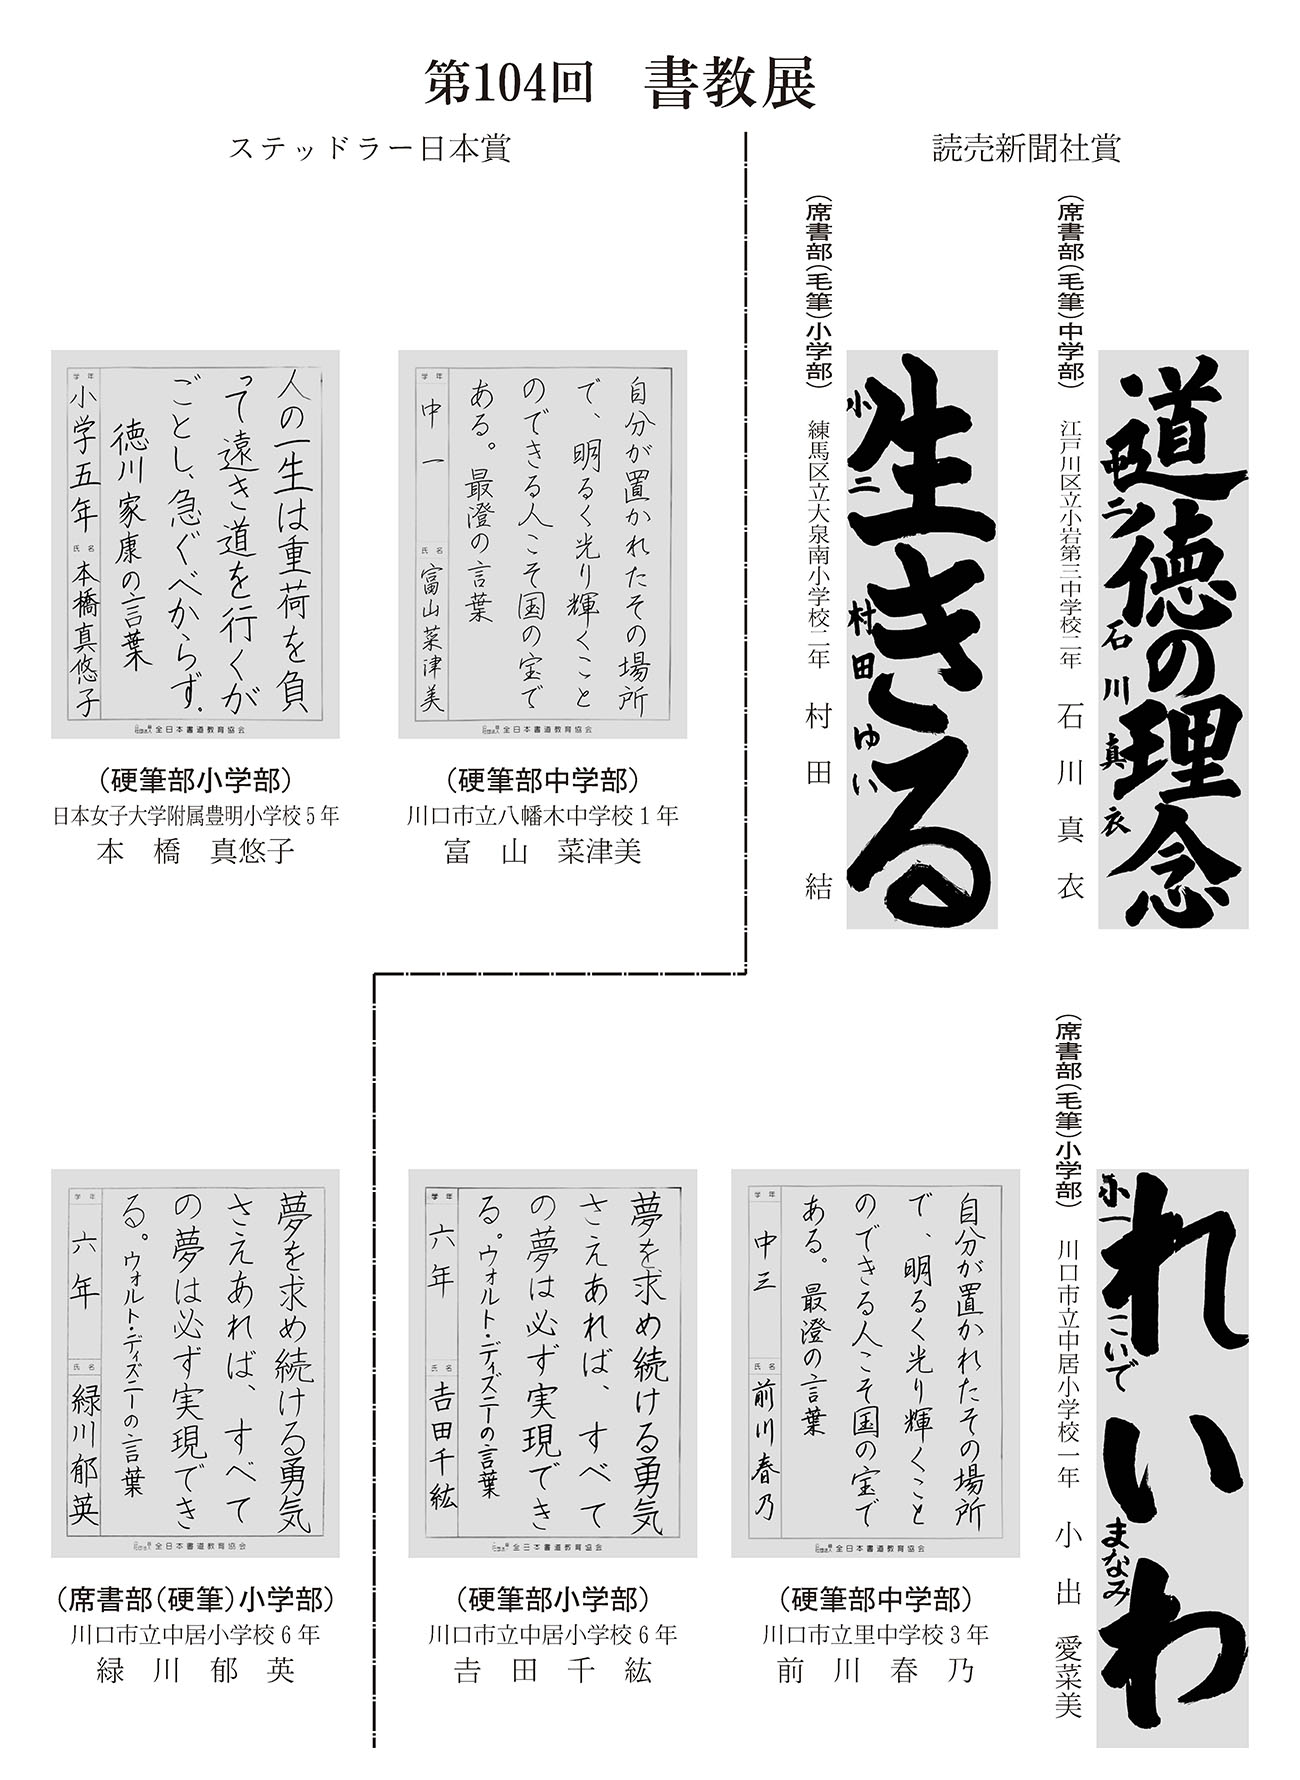 第104回 書教展
読売新聞社賞
(席書部(毛筆)中学部) 江戸川区立小岩第三中学校二年 石川真衣
道徳の理念
中二 石川真衣
(席書部(毛筆)小学部) 練馬区立大泉南小学校二年 村田結
生きる
小二 村田ゆい
(席書部(毛筆)小学部) 川口市立中居小学校一年 小出愛菜美
れいわ
小一 こいで まなみ
自分が置かれたその場所
で、明るく光り輝くこと
のできる人こそ国の宝で
ある。最澄の言葉
学年 中三 氏名 前川春乃
公益社団法人 全日本書道教育協会
(硬筆部中学部)
川口市立里中学校3年
前川春乃
夢を求め続ける勇気
さえあれば、すべて
の夢は必ず実現でき
る。ウォルト・ディズニーの言葉
学年 六年 氏名 𠮷田千紘
公益社団法人 全日本書道教育協会
(硬筆部小学部)
川口市立中居小学校6年
𠮷田千紘
ステッドラー日本賞
自分が置かれたその場所
で、明るく光り輝くこと
のできる人こそ国の宝で
ある。最澄の言葉
学年 中一 氏名 富山菜津美
公益社団法人 全日本書道教育協会
(硬筆部中学部)
川口市立八幡木中学校1年
富山菜津美
人の一生は重荷を負
って遠き道を行くが
ごとし、急ぐべからず.
徳川家康の言葉
学年 小学五年 氏名 本橋真悠子
公益社団法人 全日本書道教育協会
(硬筆部小学部)
日本女子大学附属豊明小学校5年
本橋真悠子
夢を求め続ける勇気
さえあれば、すべて
の夢は必ず実現でき
る。ウォルト・ディズニーの言葉
学年 六年 氏名 緑川郁英
公益社団法人 全日本書道教育協会
(席書部(硬筆)小学部)
川口市立中居小学校6年
緑川郁英